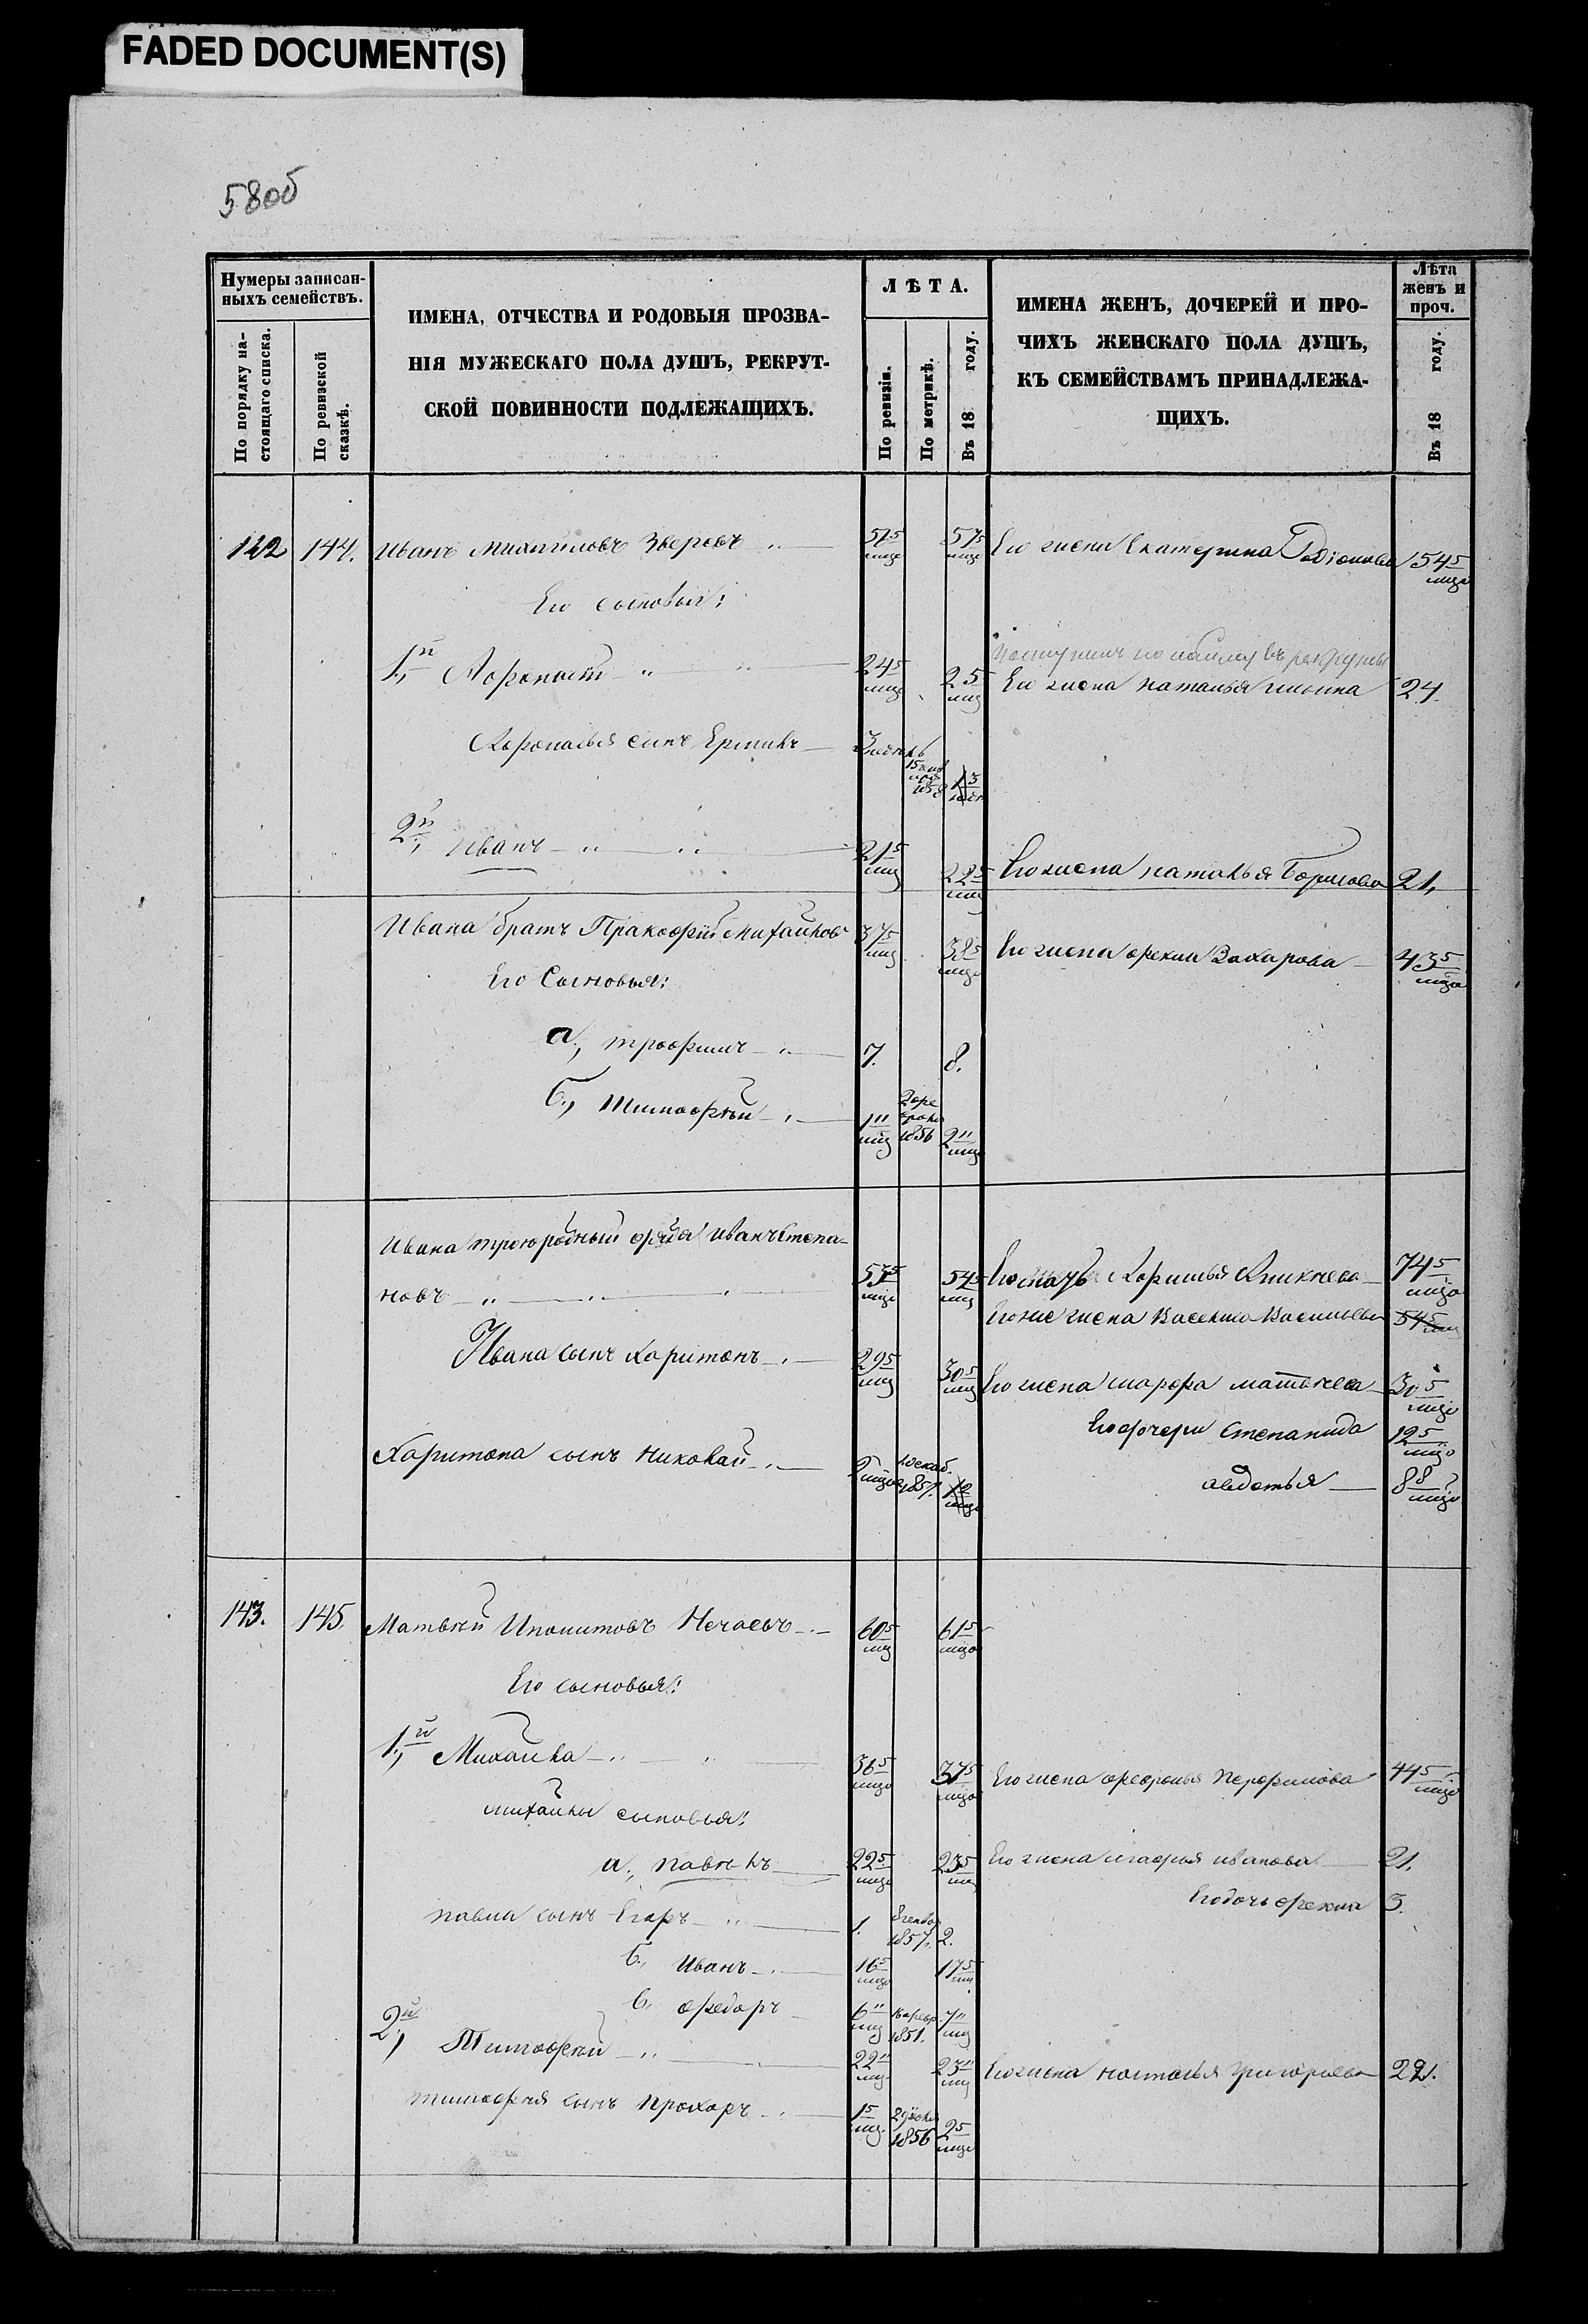 FADED DOCUMENT(S)
58об
Нумеры записан-
ныхъ семействъ.
По порядку на-
стоящаго списка.
По ревизской
сказкѣ.
ИМЕНА, ОТЧЕСТВА И РОДОВЫЯ ПРОЗВА-
НІЯ МУЖЕСКАГО ПОЛА ДУШЪ, РЕКРУТ-
СКОЙ ПОВИННОСТИ ПОДЛЕЖАЩИХЪ.
ЛѢТА.
По ревизіи.
По метрикѣ.
Въ 18 году.
ИМЕНА ЖЕНЪ, ДОЧЕРЕЙ И ПРО-
ЧИХЪ ЖЕНСКАГО ПОЛА ДУШЪ,
КЪ СЕМЕЙСТВАМЪ ПРИНАДЛЕЖА-
ЩИХЪ.
Лѣта
женъ и
проч.
Въ 18 году.
142 144. Иванъ Михайловъ Зверевъ Его жена Екатерина Родіонова 54 5
Его сыновья:
Поступилъ по найму въ рекруты
1й, 24 5 25 Его жена Наталья 24.
сынъ
2й, Иванъ 21 5 22 5 Его жена Наталья Борисова 21,
Ивана братъ Пракофій Михайловъ 37 5 38 5 Его жена Фекла Захарова 43 5
Его Сыновья:
а, Трофимъ 7. 8.
б, Тимофѣй 1 11 1856 2 11
Ивана троюродный Иванъ Степа-
новъ 54 5 Его мать 74 5
Его же жена Василиса Васильева 54 5
Ивана сынъ Харитонъ 29 5 30 5 Его жена Марфа Матвѣева 30 5
Его дочери Степанида 12 5
Харитона сынъ Николай 1857. Авдотья 8 8
143. 145. Матвѣй Ипонитовъ Нечаевъ 60 5 61 5
Его сыновья:
1й, Михайла 36 5 37 5 Его жена Февронья Перфилова 44 5
Михайлы сыновья:
а, Павелъ 22 5 23 5 Его жена Агафья Иванова 21.
Его дочь Фекла 3.
Павла сынъ Егоръ 1. 1857. 2.
б, Иванъ 16 5 17 5
в, Федоръ 6 11 1851. 7 11
2й, Тимофѣй 22 11 23 11 Его жена Наталья Григорьева 22.
Тимофѣя сынъ Прохоръ 1 5 1856 2 5